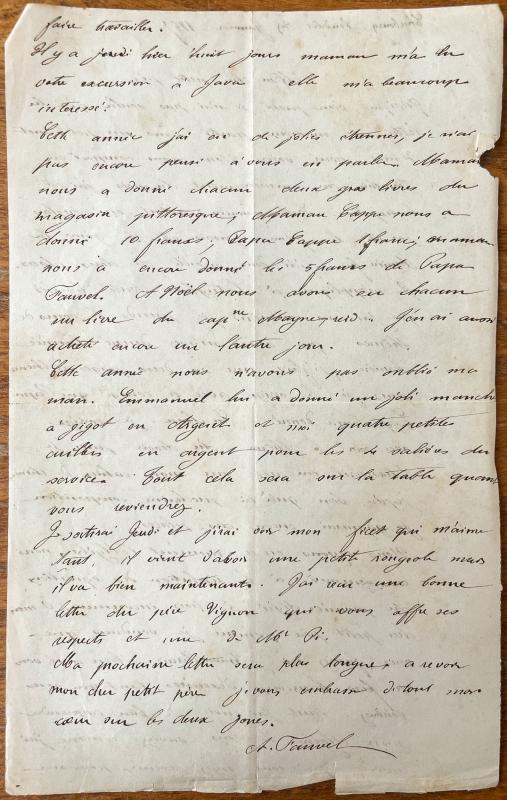 faire travailler.
Il y a jeudi hier huit jours maman m'a lu
votre excursion a Java elle m'a beaucoup
interessé.
Cette année j'ai eu de jolies étrennes, je n'ai
pas encore pensé a vous en parler. Maman
nous a donné chacun deux gros livres du
magasin pittoresque, Maman Cappe nous a
donné 10 francs, Papa Cappe 1 franc, maman
nous a encore donné les 5 francs de Papa
Fauvel. A Noël nous avons eu chacun
un livre du cap.ne Mayne-reid. J'en ai aussi
acheté encore un l'autre jour.
Cette année nous n'avons pas oublié ma
man. Emmanuel lui a donné un joli manche
a gigot en Argent et moi quatre petites
cuillers en argent pour les 4 salières du
service. Tout cela sera sur la table quand
vous reviendrez.
Je sortirai Jeudi et j'irai voir mon qui m'aime
tant, il vient d'avoir une petite rougeole mais
il va bien maintenant. J'ai reçu une bonne
lettre du père Vignon qui vous offre ses
respects et une de Mr
Ma prochaine lettre sera plus longue, a revoir
mon cher petit père je vous embrasse de tout mon
cœur sur les deux joues.
A. Fauvel